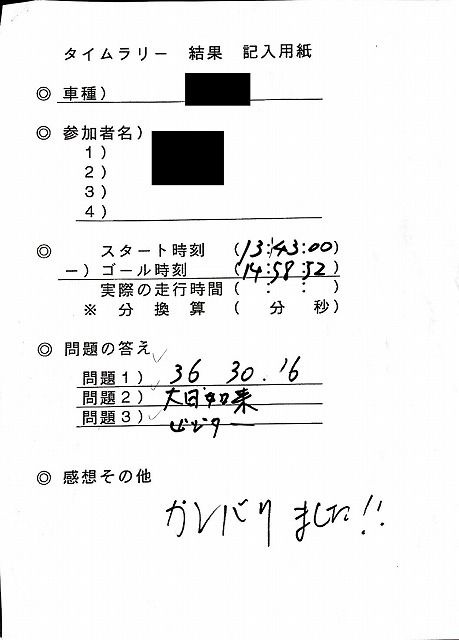 タイムラリー 結果 記入用紙
◎ 車種)
◎ 参加者名)
1)
2)
3)
4)
◎ スタート時刻 (13:43:00)
－) ゴール時刻 (14:58:52)
実際の走行時間 ( : : )
※ 分 換 算 ( 分 秒)
◎ 問題の答え
問題1) 36 30.'6
問題2) 大日如来
問題3) ビジター
◎ 感想その他
ガンバリました!!